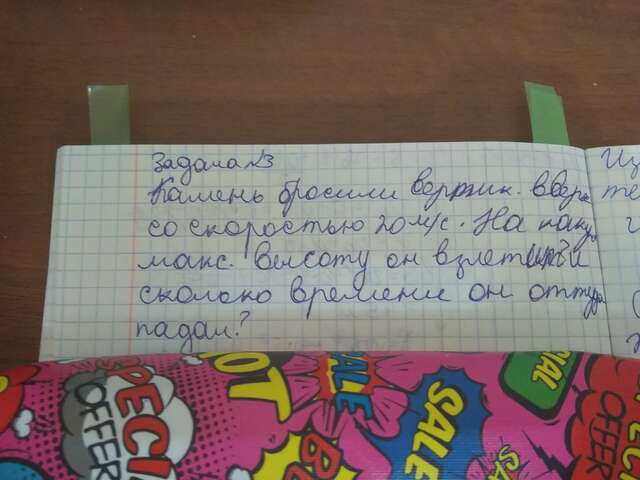 Задача №3
Камень бросили вертик. вверх
со скоростью 20 м/с. На какую
макс. высоту он взлетит и
сколько времени он оттуда
падал?
Из
те
SPECIAL
OFFER
HOT
SALE
SALE
SPECIAL
OFFER